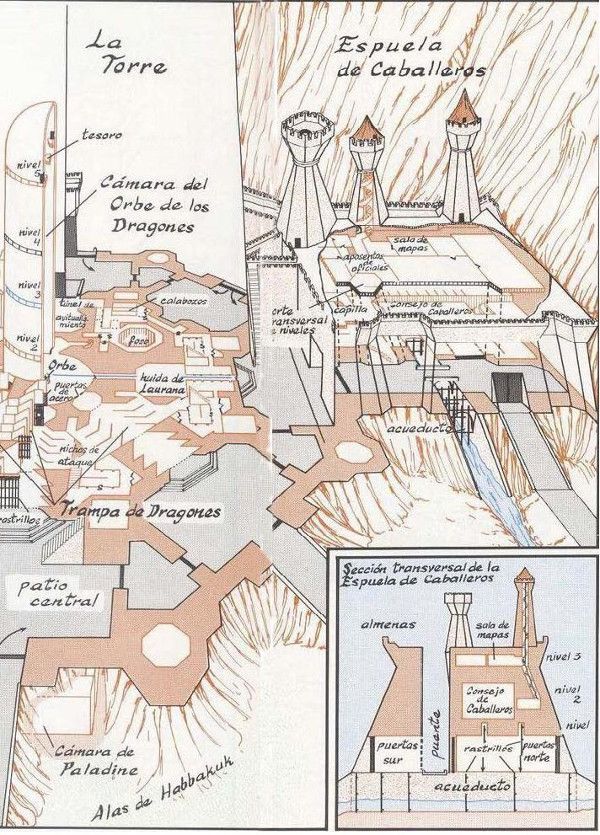 La
Torre
tesoro
nivel
5
Cámara del
Orbe de los
Dragones
nivel
4
nivel
3
túnel de
avitualla
miento
calabozos
nivel
2
foso
Orbe
puertas
de
acero
huida de
Laurana
nichos de
ataque
s
s
rastrillos
Trampa de Dragones
patio
central
Cámara de
Paladine
Alas de Habbakuk
Espuela
de Caballeros
sala de
mapas
aposentos
de
oficiales
capilla
Consejo de
Caballeros
orte
ransversal
e niveles
acueducto
Sección transversal de la
Espuela de Caballeros
almenas
sala de
mapas
nivel 3
Consejo
de
Caballeros
nivel
2
nivel
puertas
sur
puente
rastrillos
puertas
norte
acueducto